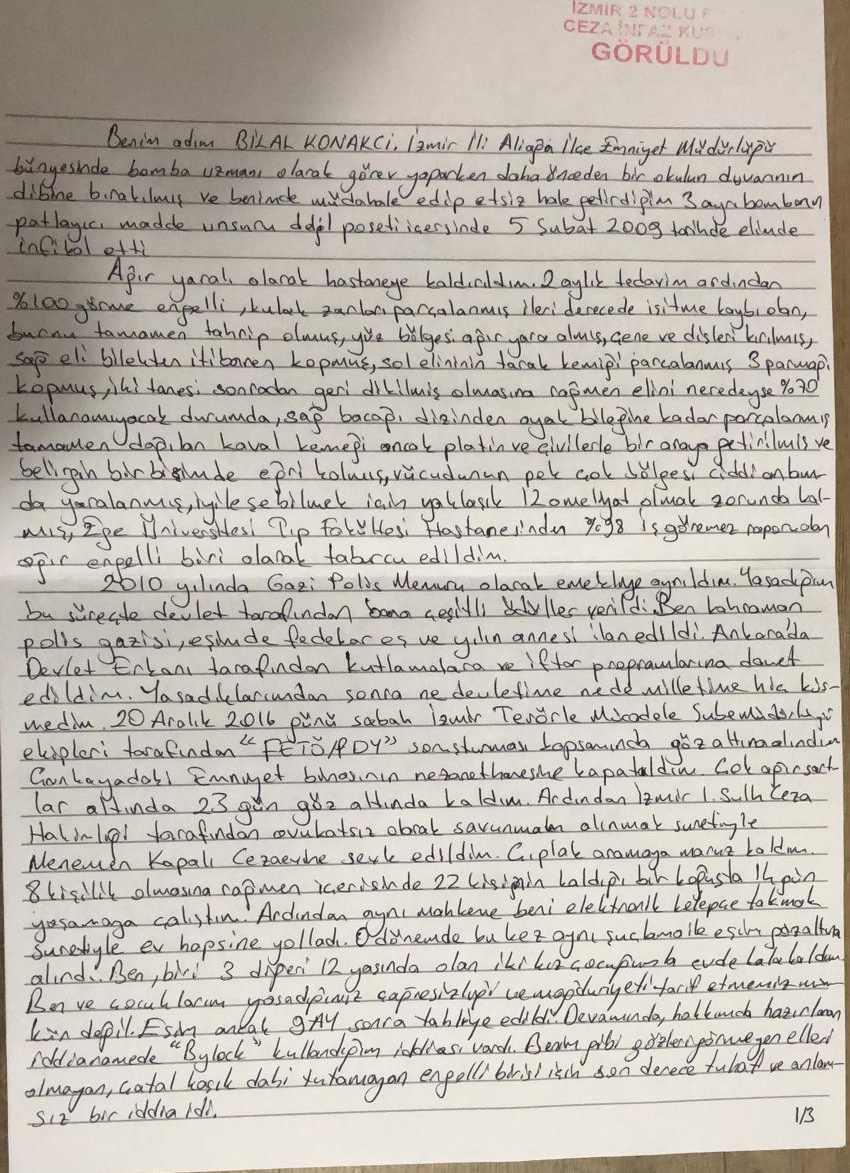 İZMİR 2 NOLU F
CEZA İNFAZ KU
GÖRÜLDÜ
Benim adım BİLAL KONAKCI. İzmir İli Aliağa İlçe Emniyet Müdürlüğü
bünyesinde bomba uzmanı olarak görev yaparken daha önceden bir okulun duvarının
dibine bırakılmış ve benimde müdahale edip etsiz hale getirdiğim 3 ayrı bombanın
patlayıcı madde unsuru delil poşeti içersinde 5 Şubat 2009 tarihde elimde
infilak etti
Ağır yaralı olarak hastaneye kaldırıldım. 2 aylık tedavim ardından
%100 görme engelli, kulak zarları parçalanmış ileri derecede işitme kaybı olan,
burnu tamamen tahrip olmuş, yüz bölgesi ağır yara almış, çene ve dişleri kırılmış,
sağ eli bilekten itibaren kopmuş, sol elininin tarak kemiği parçalanmış 3 parmağı
kopmuş, iki tanesi sonradan geri dikilmiş olmasına rağmen elini neredeyse %70
kullanamıyacak durumda, sağ bacağı dizinden ayak bileğine kadar parçalanmış
tamamen dağılan kaval kemeği ancak platin ve çivilerle bir araya getirilmiş ve
belirgin bir biçimde eğri kalmış, vücudunun pek çok bölgesi ciddi anlam-
da yaralanmış, iyileşebilmek için yaklaşık 12 ameliyat olmak zorunda kal-
mış, Ege Üniversitesi Tıp Fakültesi Hastanesinden %98 iş göremez raporu olan
ağır engelli biri olarak taburcu edildim.
2010 yılında Gazi Polis Memuru olarak emekliye ayrıldım. Yaşadığım
bu süreçte devlet tarafından bana çeşitli ödüller verildi. Ben kahraman
polis gazisi, eşimde fedekar eş ve yılın annesi ilan edildi. Ankara'da
Devlet Erkanı tarafından kutlamalara ve iftar programlarına davet
edildim. Yaşadıklarımdan sonra ne devletime nede milletime hiç küs-
medim. 20 Aralık 2016 günü sabah İzmir Terörle Mücadele Şube Müdürlüğü
ekipleri tarafından "FETÖ/PDY" soruşturması kapsamında göz altına alındım
Çankayadaki Emniyet binasının nezarethanesine kapatıldım. Çok ağır şart-
lar altında 23 gün göz altında kaldım. Ardından İzmir 1. Sulh Ceza
Hakimliği tarafından avukatsız olarak savunmam alınmak suretiyle
Menemen Kapalı Cezaevine sevk edildim. Çıplak aramaya maruz kaldım.
8 kişilik olmasına rağmen içerisinde 22 kişinin kaldığı bir koğuşta 14 gün
yaşamaya çalıştım. Ardından aynı mahkeme beni elektronik kelepçe takmak
suretiyle ev hapsine yolladı. O dönemde bu kez aynı suçlama ile eşim göz altına
alındı. Ben, biri 3 diğeri 12 yaşında olan iki kız çocuğumla evde kalakaldım
Ben ve çocuklarım yaşadığımız çaresizliği ve mağduriyeti tarif etmemiz müm-
kün değil. Eşim ancak 9 AY sonra tahliye edildi. Devamında, hakkımda hazırlanan
iddianamede "Bylock" kullandığım iddiası vardı. Benim gibi gözleri görmeyen elleri
olmayan, çatal kaşık dahi tutamayan engelli birisi için son derece tuhaf ve anlam-
sız bir iddia idi.
1/3